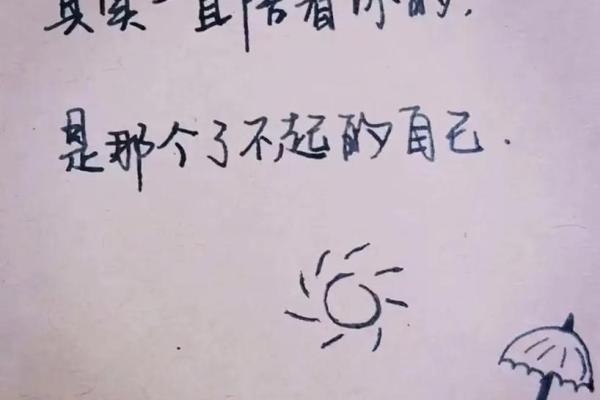 真实一直陪着你的,
是那个了不起的自己.